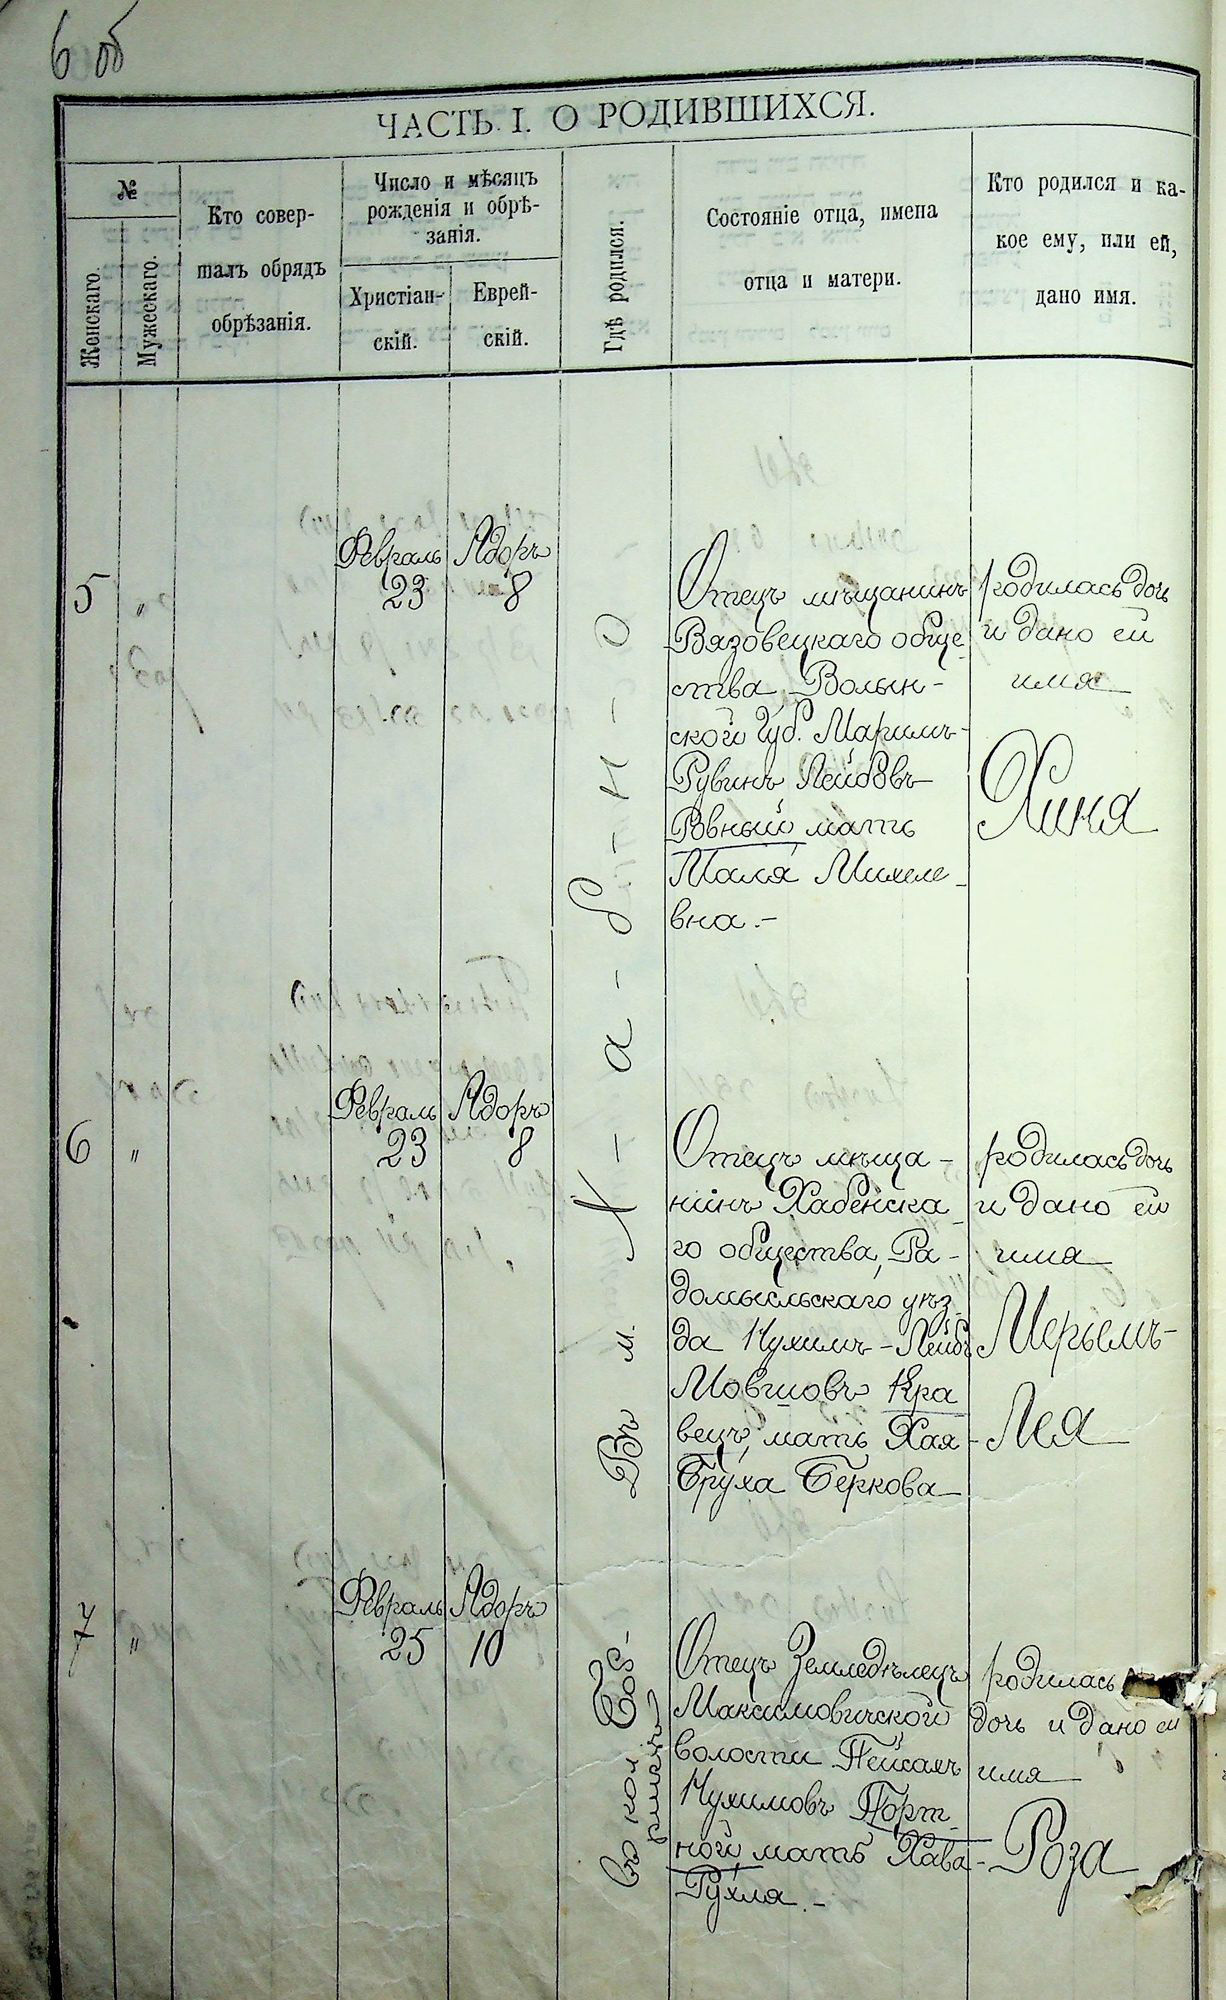 6 об
ЧАСТЬ I. О РОДИВШИХСЯ.
№
Женскаго.
Мужескаго.
Кто совер-
шалъ обрядъ
обрѣзанія.
Число и мѣсяцъ
рожденія и обрѣ-
занія.
Христіан-
скій.
Еврей-
скій.
Гдѣ родился.
Состояніе отца, имена
отца и матери.
Кто родился и ка-
кое ему, или ей,
дано имя.
Въ м. Х-а-б-н-о
5
"
Февраль
23
Адоръ
8
Отецъ мѣщанинъ
Вязовецкаго обще-
ства, Волын-
ской Губ.
Рувинъ Лейбовъ
Ровный, мать
Маля Михеле-
вна.-
родилась дочь
и дано ей
имя
Хиня
6
"
Февраль
23
Адоръ
8
Отецъ мѣща-
нинъ Хабенска-
го общества, Ра-
домысльскаго уѣз-
да Нухимъ-Лейбъ
Мовшовъ Кра
вецъ, мать Хая-
Бруха Беркова
родилась дочь
и дано ей
имя
Мерьемъ-
Лея
7
"
Февраль
25
Адоръ
10
въ кол.
Отецъ Земледѣлецъ
Максимовичской
волости Пейсахъ
Нухимовъ Порт-
ной, мать Хава-
Рухля.-
родилась
дочь и дано ей
имя
Роза